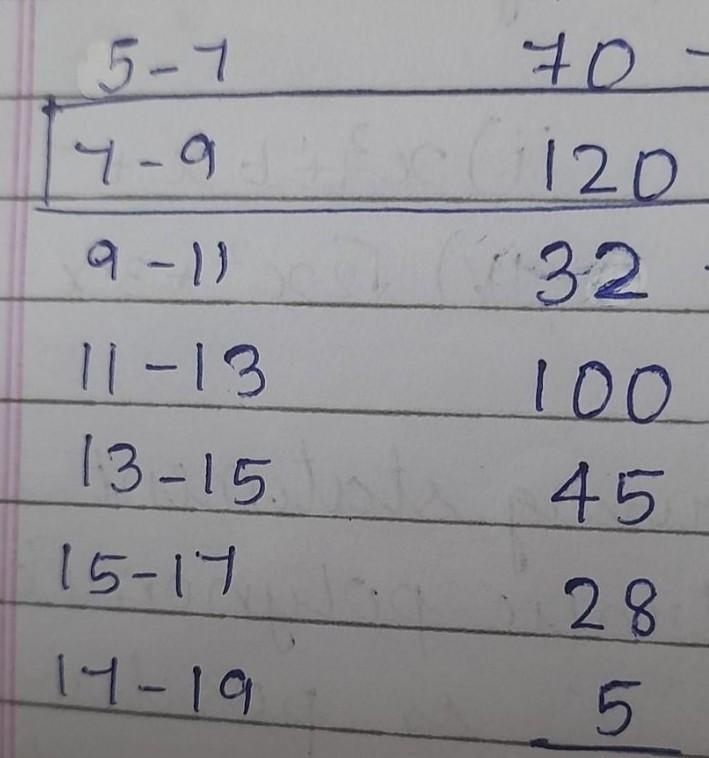 5-7 70 -
7-9 120
9-11 32
11-13 100
13-15 45
15-17 28
17-19 5